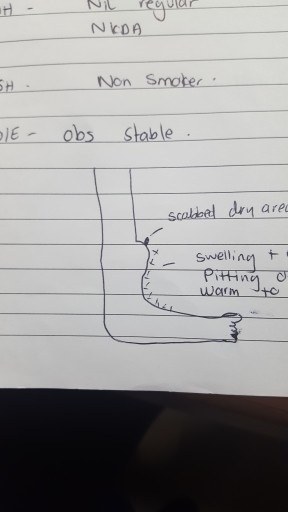 H - Nil regular
NKDA
SH. Non Smoker.
O/E - obs stable.
scabbed dry area
swelling +
Pitting
warm to